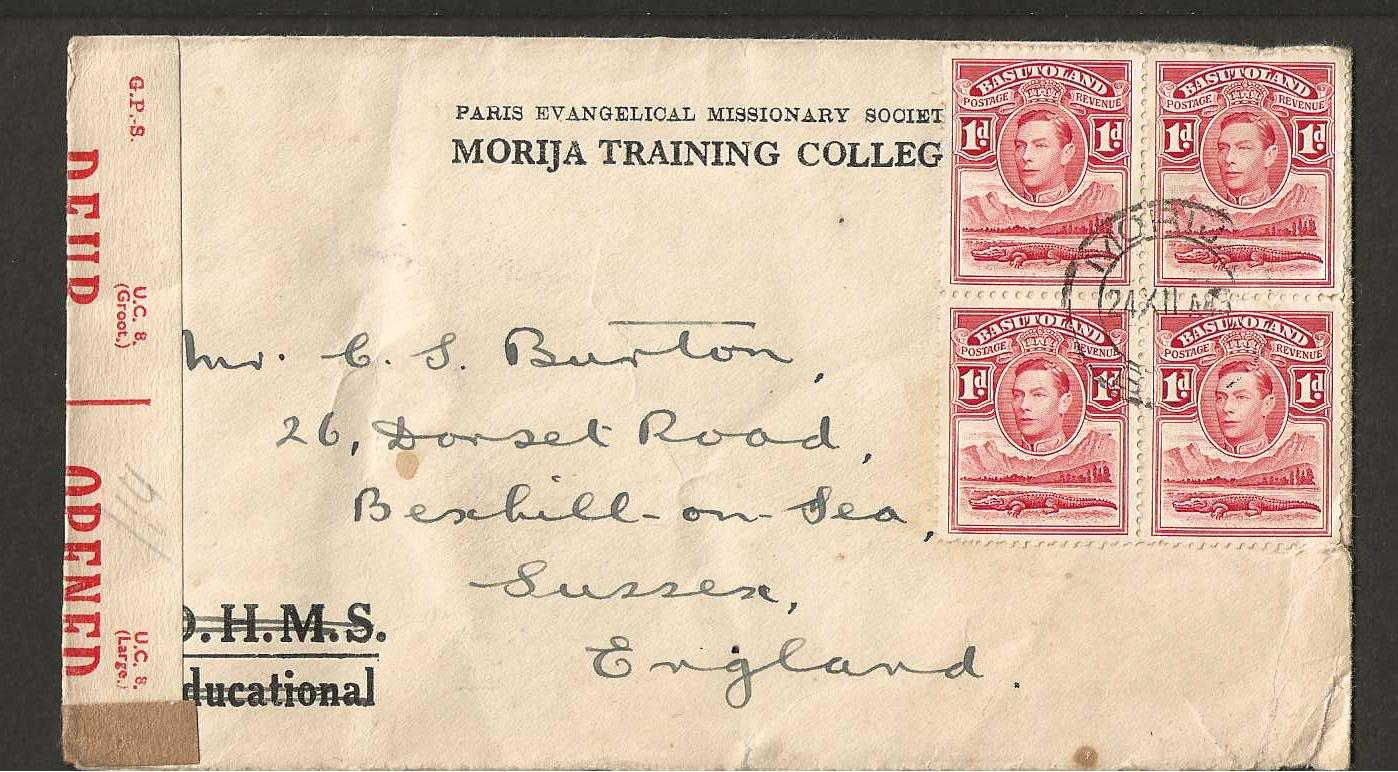 G.P.S.
DEUR
U.C. 8.
(Groot.)
OPENED
U.C. 8.
(Large.)
114
PARIS EVANGELICAL MISSIONARY SOCIET
MORIJA TRAINING COLLEG
BASUTOLAND BASUTOLAND
POSTAGE REVENUE POSTAGE REVENUE
1d 1d 1d 1d
MORIJ
24 XII 43
BASUTOLAND BASUTOLAND
POSTAGE REVENUE POSTAGE REVENUE
1d 1d 1d 1d
Mr. C. S. Burton,
26, Dorset Road,
Bexhill-on-Sea,
Sussex,
England.
O.H.M.S.
ducational